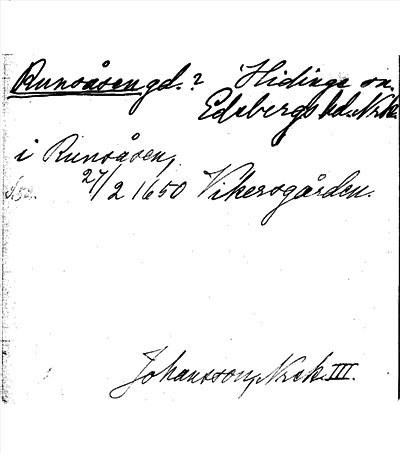 Runsåsen gd.? Hidinge sn.
Edsbergs hd. Nrk.
i Runsåsen,
27/2 1650 Vikersgården.
Johansson, Nrk. III.